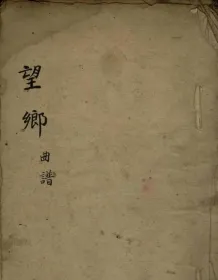 望鄉曲譜